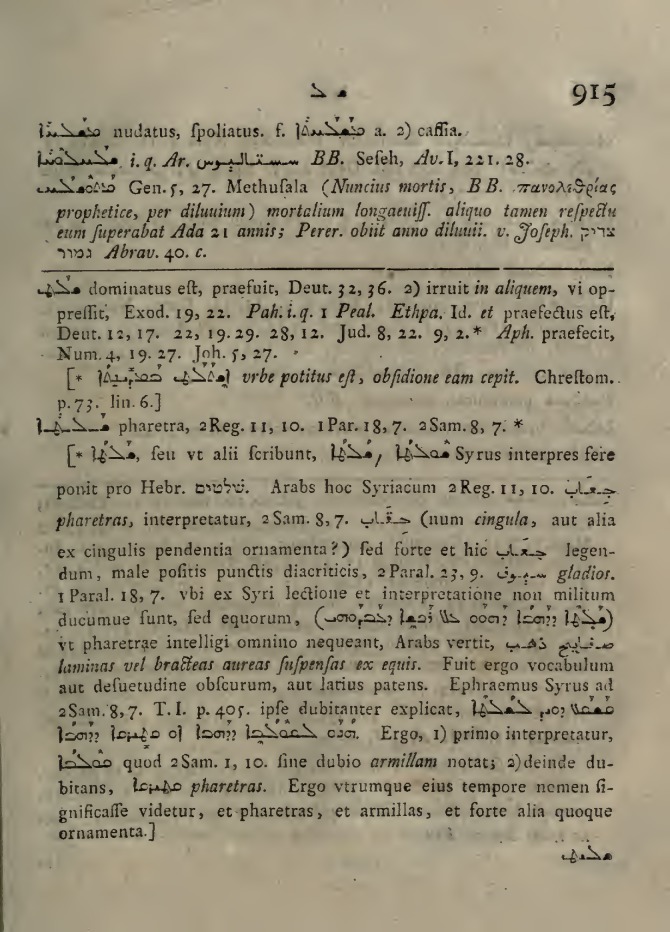 ܫ ܠ 915
nudatus, ſpoliatus. f. a. 2) caſſia.
i. q. Ar. سستاليوس BB. Seſeh, Av. I, 221. 28.
Gen. 5, 27. Methuſala (Nuncius mortis, BB. πανολεθρίας
prophetice, per diluuium) mortalium longaeuiſſ. aliquo tamen reſpectu
eum ſuperabat Ada 21 annis; Perer. obiit anno diluuii. v. Joſeph. צדיק
גמור Abrav. 40. c.
ܫܠܛ dominatus eſt, praefuit, Deut. 32, 36. 2) irruit in aliquem, vi op-
preſſit, Exod. 19, 22. Pah. i. q. 1 Peal. Ethpa. Id. et praefectus eſt,
Deut. 12, 17. 22, 19. 29. 28, 12. Jud. 8, 22. 9, 2.* Aph. praefecit,
Num. 4, 19. 27. Joh. 5, 27.
[* vrbe potitus eſt, obſidione eam cepit. Chreſtom.
p. 73. lin. 6.]
pharetra, 2Reg. 11, 10. 1Par. 18, 7. 2Sam. 8, 7. *
[* ܫܠܛܐ, ſeu vt alii ſcribunt, Syrus interpres fere
ponit pro Hebr. שלטים. Arabs hoc Syriacum 2Reg. 11, 10. جعاب
pharetras, interpretatur, 2Sam. 8, 7. (num cingula, aut alia
ex cingulis pendentia ornamenta?) ſed forte et hic جعاب legen-
dum, male poſitis punctis diacriticis, 2Paral. 23, 9. سيوف gladios.
1Paral. 18, 7. vbi ex Syri lectione et interpretatione non militum
ducumue ſunt, ſed equorum,
vt pharetrae intelligi omnino nequeant, Arabs vertit, صفايح ذهب
laminas vel bracteas aureas ſuſpenſas ex equis. Fuit ergo vocabulum
aut deſuetudine obſcurum, aut latius patens. Ephraemus Syrus ad
2Sam. 8, 7. T. I. p. 405. ipſe dubitanter explicat,
Ergo, 1) primo interpretatur,
quod 2Sam. 1, 10. ſine dubio armillam notat; 2) deinde du-
bitans, pharetras. Ergo vtrumque eius tempore nomen ſi-
gnificaſſe videtur, et pharetras, et armillas, et forte alia quoque
ornamenta.]